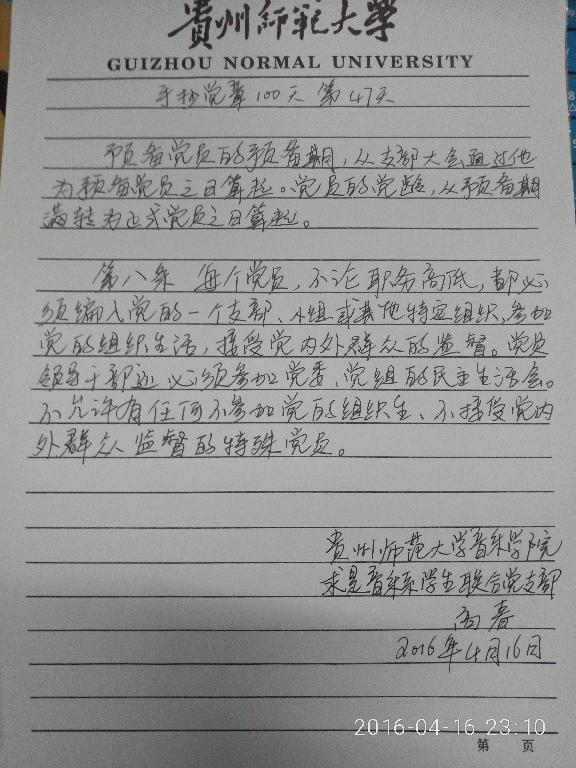 貴州師範大學
GUIZHOU NORMAL UNIVERSITY
手抄党章100天 第47天
预备党员的预备期，从支部大会通过他
为预备党员之日算起。党员的党龄，从预备期
满转为正式党员之日算起。
第八条 每个党员，不论职务高低，都必
须编入党的一个支部、小组或其他特定组织，参加
党的组织生活，接受党内外群众的监督。党员
领导干部还必须参加党委、党组的民主生活会。
不允许有任何不参加党的组织生、不接受党内
外群众监督的特殊党员。
贵州师范大学音乐学院
求是音乐系学生联合党支部
高春
2016年4月16日
2016-04-16 23:10
第 页